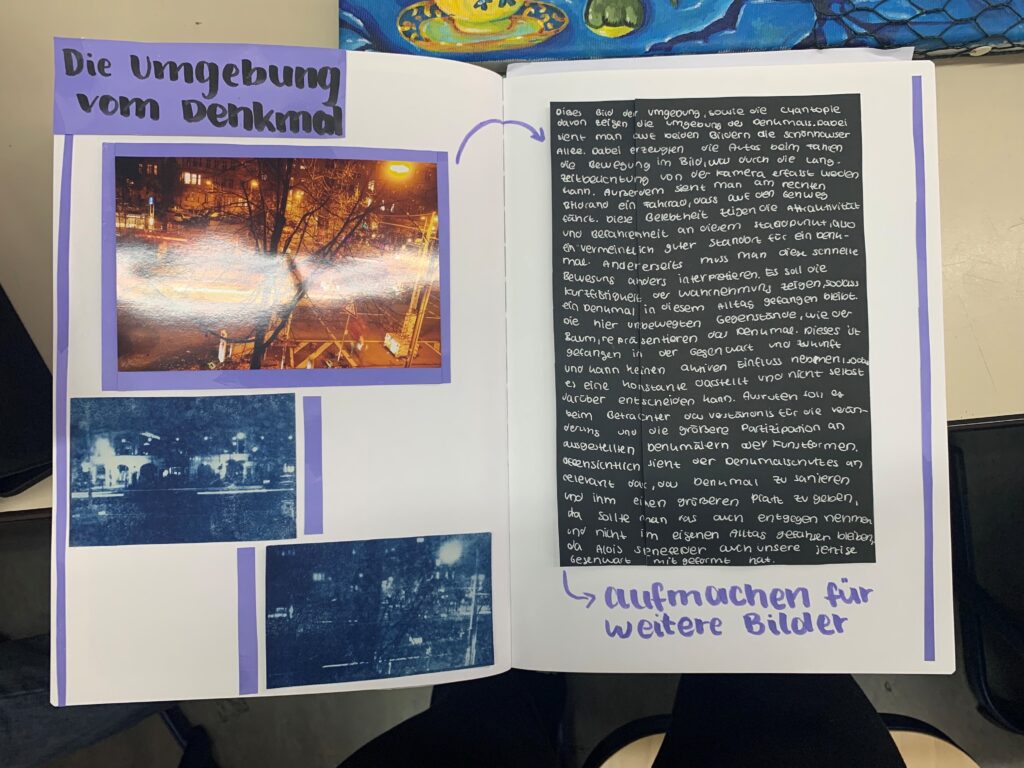 Die Umgebung
vom Denkmal
Dieses Bild der Umgebung, sowie die Cyantopie
davon zeigen die Umgebung des Denkmals. Dabei
sieht man auf beiden Bildern die Schönhauser
Allee. Dabei erzeugen die Autos beim Fahren
die Bewegung im Bild, was durch die Lang-
zeitbelichtung von der Kamera erfasst werden
kann. Außerdem sieht man am rechten
Bildrand ein Fahrrad, dass auf den Gehweg
fährt. Diese Belebtheit zeigen die Attraktivität
und Befahrenheit an diesem Standpunkt, also
ein vermeintlich guter Standort für ein Denk-
mal. Andererseits muss man diese schnelle
Bewegung anders interpretieren. Es soll die
Kurzfristigkeit der Wahrnehmung zeigen, sodass
ein Denkmal in diesem Alltag gefangen bleibt.
Die hier unbewegten Gegenstände, wie der
Baum, repräsentieren das Denkmal. Dieses ist
gefangen in der Gegenwart und Zukunft
und kann keinen aktiven Einfluss nehmen, sodass
es eine Konstante darstellt und nicht selbst
darüber entscheiden kann. Aufrufen soll es
beim Betrachter das Verständnis für die Verän-
derung und die größere Partizipation an
ausgestellten Denkmälern oder Kunstformen.
Offensichtlich sieht der Denkmalschutz es an
relevant das Denkmal zu sanieren
und ihm einen größeren Platz zu geben,
da sollte man das auch entgegen nehmen
und nicht im eigenen Alltag gefangen bleiben,
da Alois Senefelder auch unsere jetzige
Gegenwart mit geformt hat.
aufmachen für
weitere Bilder